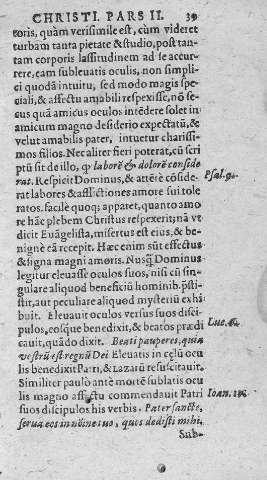 CHRISTI. PARS II. 39
toris, quàm verisimile est, cùm videret
turbam tanta pietate & studio, post tan-
tam corporis lassitudinem ad se accur-
rere, eam subleuatis oculis, non simpli-
ci quodã intuitu, sed modo magis spe-
ciali, & affectu amabili respexisse, nõ se-
cus quâ amicus oculos intẽdere solet in
amicum magno desiderio expectatũ, &
velut amabilis pater, intuetur charissi-
mos filios. Nec aliter fieri poterat, cũ scri
ptũ sit de illo, ꝙ laborẽ & dolorẽ conside
rat. Respicit Dominus, & attẽtè cõside- Psal. 9.
rat labores & afflictiones amore sui tole
ratos. facilè quoq; apparet, quanto amo
re hãc plebem Christus respexerit; nã vt
dicit Euãgelista, misertus est eius, & be-
nignè eã recepit. Hæc enim sũt effectus
& signa magni amoris. Nusq̃ Dominus
legitur eleuasse oculos suos, nisi cũ sin-
gulare aliquod beneficiũ hominib. p̃sti-
tit, aut peculiare aliquod mysteriũ exhi
buit. Eleuauit oculos versus suos disci-
pulos, eosque benedixit, & beatos prædi Luc. 6.
cauit, quãdo dixit. Beati pauperes, quia
vestrũ est regnũ Dei Eleuatis in cęlũ ocu
lis benedixit Patri, & Lazarũ resuscitauit.
Similiter paulo antè mortẽ sublatis ocu
lis magno affectu commendauit Patri Ioan.
suos discipulos his verbis. Pater sancte,
serua eos in nõine tuo, quos dedisti mihi.
Sub-